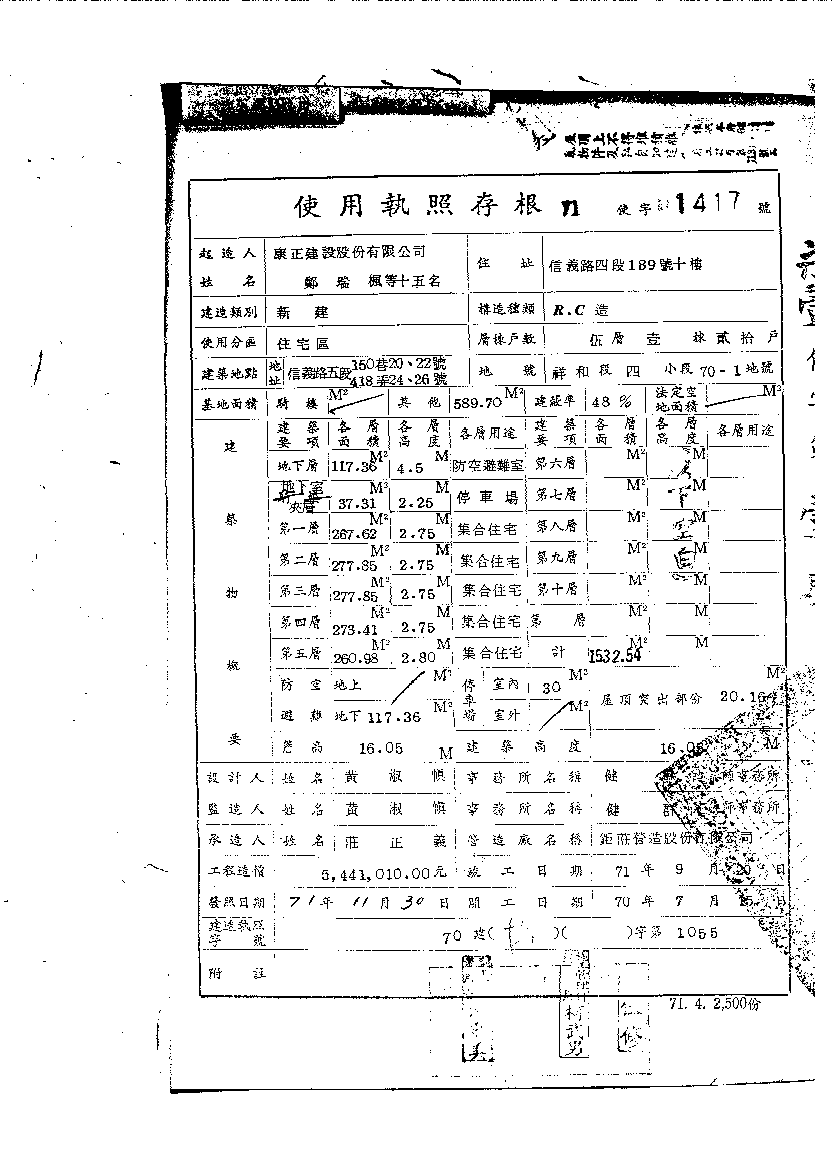 屋頂上不得堆積
使用執照存根 使字 1417 號
起造人 康正建設股份有限公司 住址 信義路四段189號十樓
姓名 鄭瑞楓等十五名
建造類別 新建 構造種類 R.C造
使用分區 住宅區 層棟戶數 伍層壹棟貳拾戶
建築地點 地址 信義路五段 150巷20、22號 地號 祥和段四小段70-1地號
418弄24、26號
基地面積 騎樓 M² 其他 589.70 M² 建蔽率 48% 法定空地面積 M²
建築物概要
建築要項 各層面積 各層高度 各層用途 建築要項 各層面積 各層高度 各層用途
地下層 117.36 M² 4.5 M 防空避難室 第六層 M² M
地下室夾層 37.31 M² 2.25 M 停車場 第七層 M²
第一層 267.62 M² 2.75 M 集合住宅 第八層 M²
第二層 277.85 M² 2.75 M 集合住宅 第九層 M² M
第三層 277.85 M² 2.75 M 集合住宅 第十層 M² M
第四層 273.41 M² 2.75 M 集合住宅 第 層 M² M
第五層 260.98 M² 2.80 M 集合住宅 計 1532.54 M² M
以下空白
防空避難 地上 M² 停車場 室內 30 M² 屋頂突出部份 20.16 M²
地下 117.36 M² 室外 M²
簷高 16.05 M 建築高度 16.05 M
設計人 姓名 黃淑慎 事務所名稱 健 師事務所
監造人 姓名 黃淑慎 事務所名稱 健群 師事務所
承造人 姓名 莊正義 營造廠名稱 鉅莊營造股份有限公司
工程造價 5,441,010.00元 竣工日期 71年9月20日
發照日期 71年11月30日 開工日期 70年7月15日
建造執照字號 70建( )( )字第1055
附註
柯武男
71. 4. 2,500份